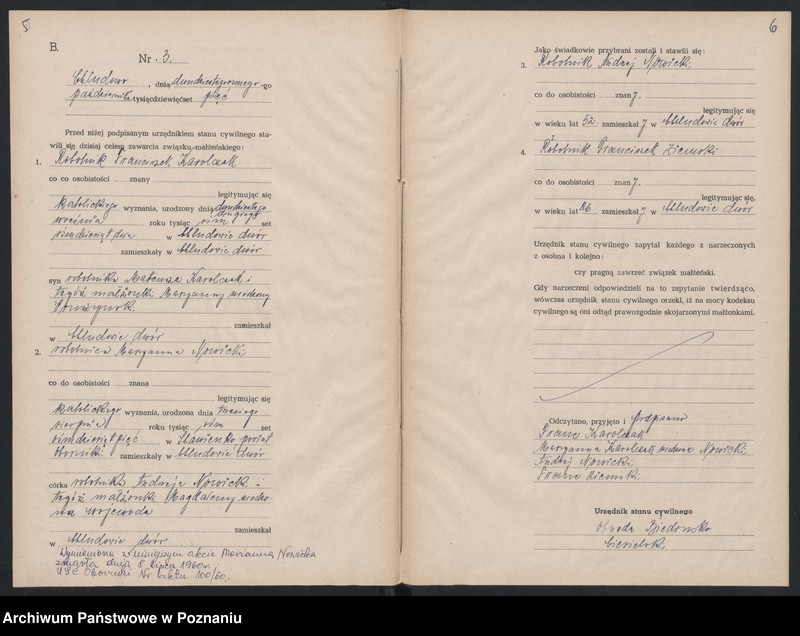 5
B.
Nr. 3.
Chludowo, dnia dwudziestego -go
października tysiącdziewięćset pięć
Przed niżej podpisanym urzędnikiem stanu cywilnego sta-
wili się dzisiaj celem zawarcia związku małżeńskiego:
1. Robotnik Franciszek Karolczak
co co osobistości znany
legitymując się
katolickiego wyznania, urodzony dnia dwudziestego
drugiego
września roku tysiąc ośm set
ośmdziesiąt dwa w Chludowie dwór
zamieszkały w Chludowie dwór
syn robotnika Mateusza Karolczak i
tegóż małżonki Maryanny urodzony
zamieszkał
w Chludowie dwór
2. robotnica Maryanna Nowicki,
co do osobistości znana
legitymując się
katolickiego wyznania, urodzona dnia trzeciego
sierpnia roku tysiąc ośm set
ośmdziesiąt pięć w powiat
Oborniki zamieszkały w Chludowie dwór
córka robotnika Andrzeja Nowicki i
tegóż małżonki Magdaleny urodzo-
na Wojewoda
zamieszkał
w Chludowie dwór
Wymieniona w niniejszym akcie Marianna Nowicka
zmarła dnia 8 lipca 1960 r.
USC Oborniki Nr aktu 100/60.
6
Jako świadkowie przybrani zostali i stawili się:
3. Robotnik Andrzej Nowicki,
co do osobistości znany,
legitymując się
w wieku lat 52 zamieszkały w Chludowie dwór
4. Robotnik Franciszek Ziemski
co do osobistości znany,
legitymując się,
w wieku lat 26 zamieszkały w Chludowie dwór
Urzędnik stanu cywilnego zapytał każdego z narzeczonych
z osobna i kolejno:
czy pragną zawrzeć związek małżeński.
Gdy narzeczeni odpowiedzieli na to zapytanie twierdząco,
wówczas urzędnik stanu cywilnego orzekł, iż na mocy kodeksu
cywilnego są oni odtąd prawozgodnie skojarzonymi małżonkami.
Odczytano, przyjęto i podpisano
Franc Karolczak
Maryanna Karolczak urodzona Nowicki,
Andrzej Nowicki,
Franc Ziemski
Urzędnik stanu cywilnego
Archiwum Państwowe w Poznaniu